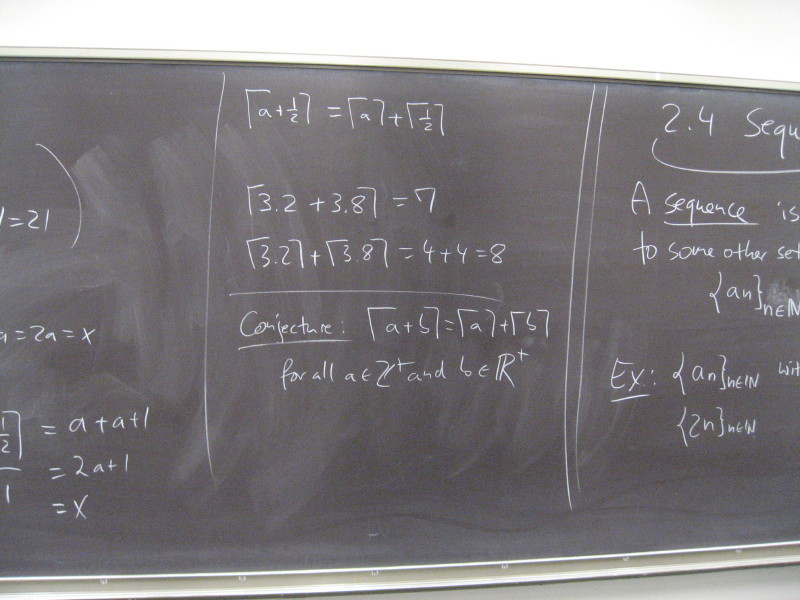 =21
=2a=x
1/2⌉ = a+a+1
= 2a+1
=x
⌈a+1/2⌉ = ⌈a⌉+⌈1/2⌉
⌈3.2 +3.8⌉ = 7
⌈3.2⌉+⌈3.8⌉ = 4+4=8
Conjecture: ⌈a+b⌉=⌈a⌉+⌈b⌉
for all a∈ℤ⁺ and b∈ℝ⁺
2.4 Sequ
A sequence is
to some other set
{an}n∈ℕ
Ex: {an}n∈ℕ wit
{2n}n∈ℕ